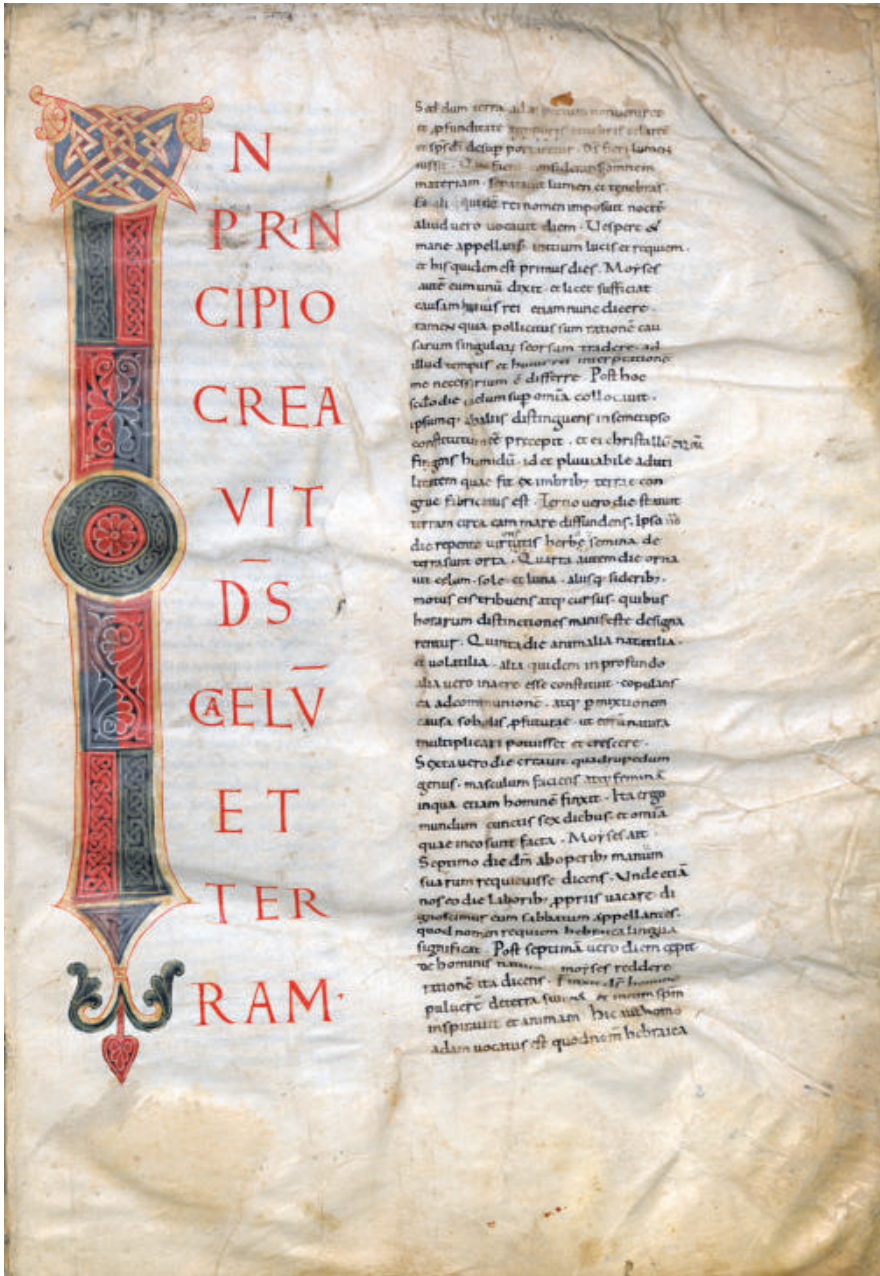 IN
PRIN
CIPIO
CREA
VIT
D̄S
CAELV̄
ET
TER
RAM·
Sed dum terra ad
et ꝓfunditate tenebris celaret̄
et sp̄s d̄i desup portaretur · D̄s fieri lumen
iussit · Quo facto considerans omnem
materiam · separauit lumen et tenebras ·
Et ali quidē rei nomen imposuit noctē
aliud uero uocauit diem · Uespere &
mane appellans · initium lucis et requiem ·
et his quidem est primus dies . Moyses
autē eum unū dixit · et licet sufficiat
causam huius rei etiam nunc dicere ·
tamen quia pollicitus sum rationē cau
sarum singularꝝ seorsum tradere · ad
illud tempus et huius rei interp̄tationē
me necessarium ē differre · Post hoc
sc̄do die caelum sup om̄ia collocauit ·
ipsumq; ab aliis distinguens in semetipso
constitutum eē precepit · et ei christallū
fingens humidū · id et pluuiabile ad uti
litatem quae fit ex imbrib; terrae con
grue fabricatus est · Tertio uero die statuit
terram circa eam mare diffundens . Ipsa ūo
die repente uirtutis herbę semina de
terra sunt orta · Quarta autem die orna
uit celum · sole · et luna · aliisq; siderib;
motus eis tribuens atq; cursus · quibus
horarum distinctiones manifeste designa
rentur · Quinta die animalia natatilia ·
et uolatilia · alia quidem in profundo
alia uero in aere esse constituit · copulans
ea ad communionē · atq; p mixtionem
causa sobolis ꝓfuturae · ut eorū natura
multiplicari potuisset et crescere ·
Sexta uero die creauit quadrupedum
genus · masculum faciens atq; feminā
in qua etiam hominē finxit · Ita ergo
mundum cunctis sex diebus · et om̄ia
quae in eo sunt facta · Moyses ait
Septimo die dm̄ ab operib; manuum
suarum requieuisse dicens · Unde etiā
nos eo die laborib; ꝓpriis uacare di
gnoscimur eum sabbatum appellantes ·
quod nomen requiem hebraea lingua
significat · Post septimā uero diem cępit
de hominis natura moyses reddere
rationē ita dicens · Finxit d̄s hominē
puluerē de terra sumens et in eum sp̄m
inspirauit et animam hic aut̄ homo
adam uocatus est quod nom̄ hebraea